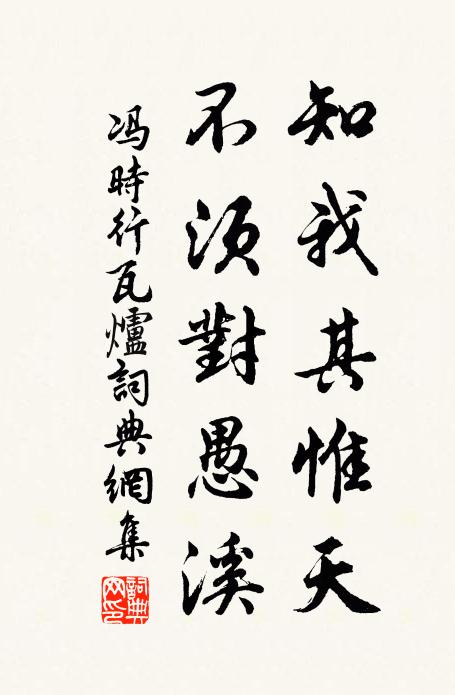 知我其惟天
不須對愚溪
馮時行瓦爐詞典網集
詞典网印